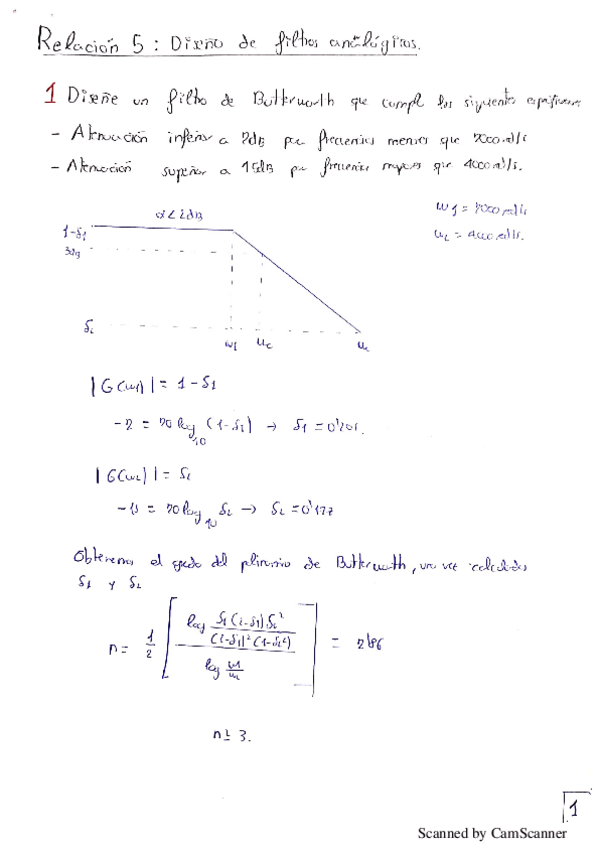 Relación 5: Diseño de filtros analógicos.
1 Diseñe un filtro de Butterworth que cumpl las siguientes especificaciones
- Atenuación inferior a 2dB para frecuencias menores que 2000 rad/s
- Atenuación superior a 15dB para frecuencias mayores que 4000 rad/s.
α<2dB
w1 = 2000 rad/s
1-δ1
3dB
δ2
w1 wc
|G(w1)| = 1-δ1
-2 = 20 log10 (1-δ1) → δ1 = 0'201.
|G(w2)| = δ2
-15 = 20 log10 δ2 → δ2 = 0'177
Obtenemos el grado del polinomio de Butterworth, una vez calculados
δ1 y δ2
n = 1/2 [log δ1(2-δ1)δ2² / (1-δ1)²(1-δ2²) / log w1/w2] = 2'86
n ≥ 3.
1
Scanned by CamScanner